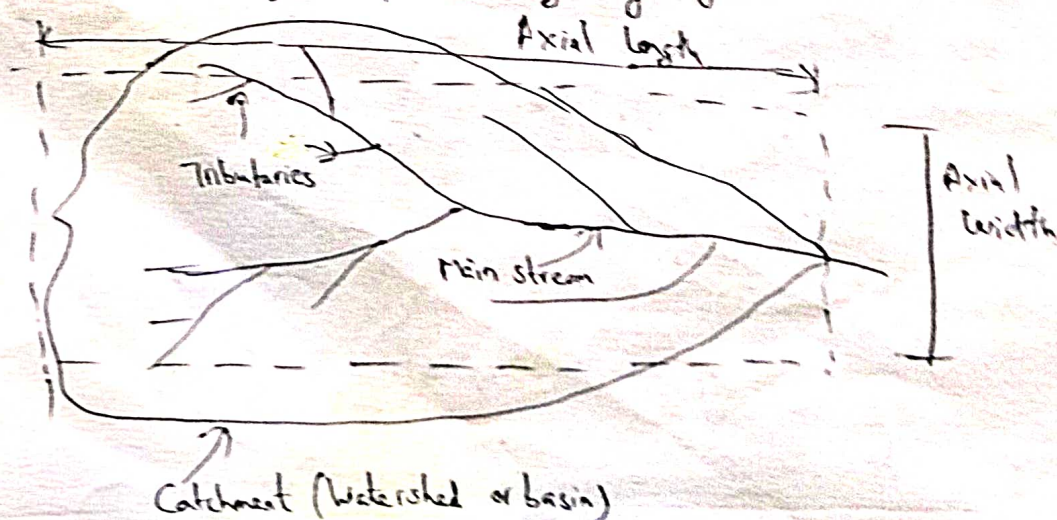 Axial length
Tributaries
Axial
width
Main stream
Catchment (Watershed or basin)